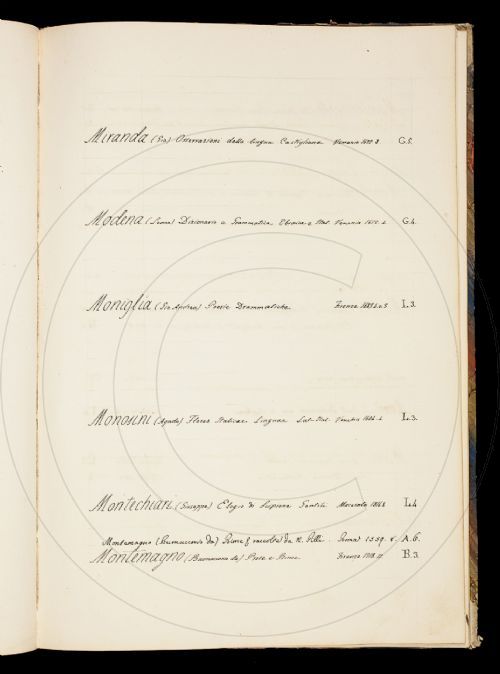 Miranda (Gio) Osservazioni della lingua Castigliana Venezia 8. G.5.
Modena (Leone) Dizionario e Grammatica Ebraica e Ital. Venezia G.4.
Moniglia (Gio Andrea) Poesie Drammatiche Firenze L.3.
Monosini (Agnolo) Flores Italicae Linguae Lat-Ital. Venetia L.3.
Montechiari (Giuseppe) Elogio di Gentili Macerata L.4
Montemagno (Buonaccorso da) Rime raccolte da N. Pilli. Roma 1559. 8. A.6.
Montemagno (Buonaccorso da) Prose e Rime Firenze 1718. B.3.